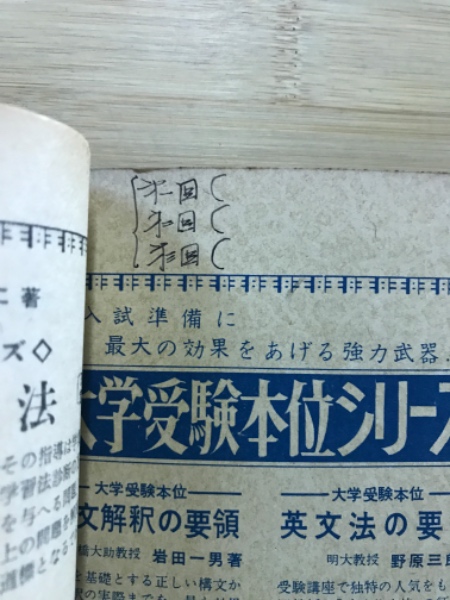 第一回(
第二回(
第三回(
入試準備に
最大の効果をあげる強力武器
大学受験本位シリーズ
大学受験本位
文解釈の要領
橋大助教授 岩田一男著
を基礎とする正しい構文か
大学受験本位
英文法の要
明大教授 野原三郎
受験講座で独特の人気をも
著
ズ◇
法
その指導は
学習法診断の
を与へる問題
上の問題を
道標となる